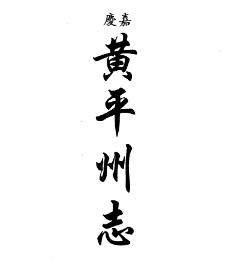 嘉慶
黃平州志